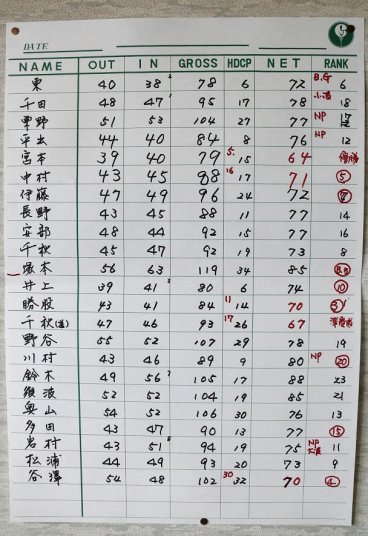 DATE
NAME OUT IN GROSS HDCP NET RANK
東 40 38 2 78 6 72 B.G 6
千田 48 47 1 95 17 78 18
栗野 51 53 104 27 77 NP 17
平出 44 40 84 8 76 NP 12
宮本 39 40 79 5. 15 64 優勝
中村 43 45 88 16 17 71 ⑤
伊藤 47 49 96 24 72 ⑦
長野 43 45 88 11 77 14
安部 48 44 92 15 77 16
千秋 45 47 92 19 73 8
塚本 56 63 119 34 85 B.B
井上 39 41 2 80 6 74 ⑩
勝股 43 41 84 11 14 70 ③
千秋(道) 47 46 93 17 26 67 準優勝
野谷 55 52 107 29 78 19
川村 43 46 89 9 80 NP ⑳
鈴木 49 56 2 105 17 88 23
難波 52 52 104 19 85 21
奥山 54 52 106 30 76 13
多田 43 47 90 13 77 ⑮
岩村 43 51 94 19 75 NP 11
松浦 44 49 93 20 73 9
谷澤 54 48 102 30 32 70 ④